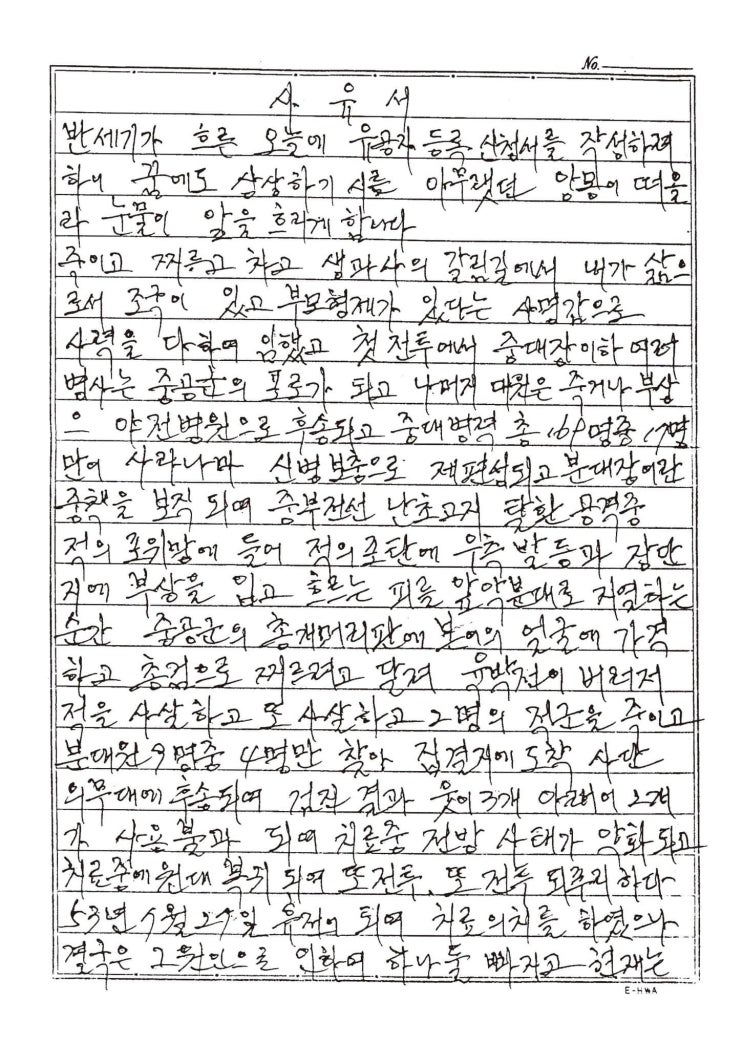 No.
사 유 서
반세기가 흐른 오늘에 유공자 등록 신청서를 작성하려
하니 꿈에도 상상하기 시름 아푸랬던 앙몽이 떠올
라 눈물이 앞을 흐리게 합니다
죽이고 찌르고 차고 생과사의 갈림길에서 내가 삶으
로서 조국이 있고 부모형제가 있다는 사명감으로
사력을 다하여 임했고 첫 전투에서 중대장이하 여러
병사는 중공군의 포로가 되고 나머지 대원은 죽거나 부상
으 야전병원으로 후송되고 중대병력 총 169명중 17명
만이 사라나마 신병보충으로 제편성되고 분대장이란
중책을 보직 되며 중부전선 난초고지 탈환 공격중
적의 포위망에 들어 적의 포탄에 우측 발등과 장단
지에 부상을 입고 흐르는 피를 압약분대로 지열하는
순간 중공군의 총개머리판에 본인의 얼굴에 가격
하고 총검으로 찌르려고 달려 육박전이 버러저
적을 사살하고 또 사살하고 2명의 적군을 죽이고
분대원 9명중 4명만 찾아 집결지에 도착 사단
의무대에 후송되여 검진 결과 웃이 3개 아래이 2개
가 사용불과 되며 치료중 전방 사태가 악화되고
치료중에 원대 복귀 되여 또 전투, 또 전투 되푸리하다
53년 7월 27일 휴전이 되여 치료 의치를 하였으나
결국은 그 원인으로 인하여 하나둘 빠지고 현재는
E-HWA